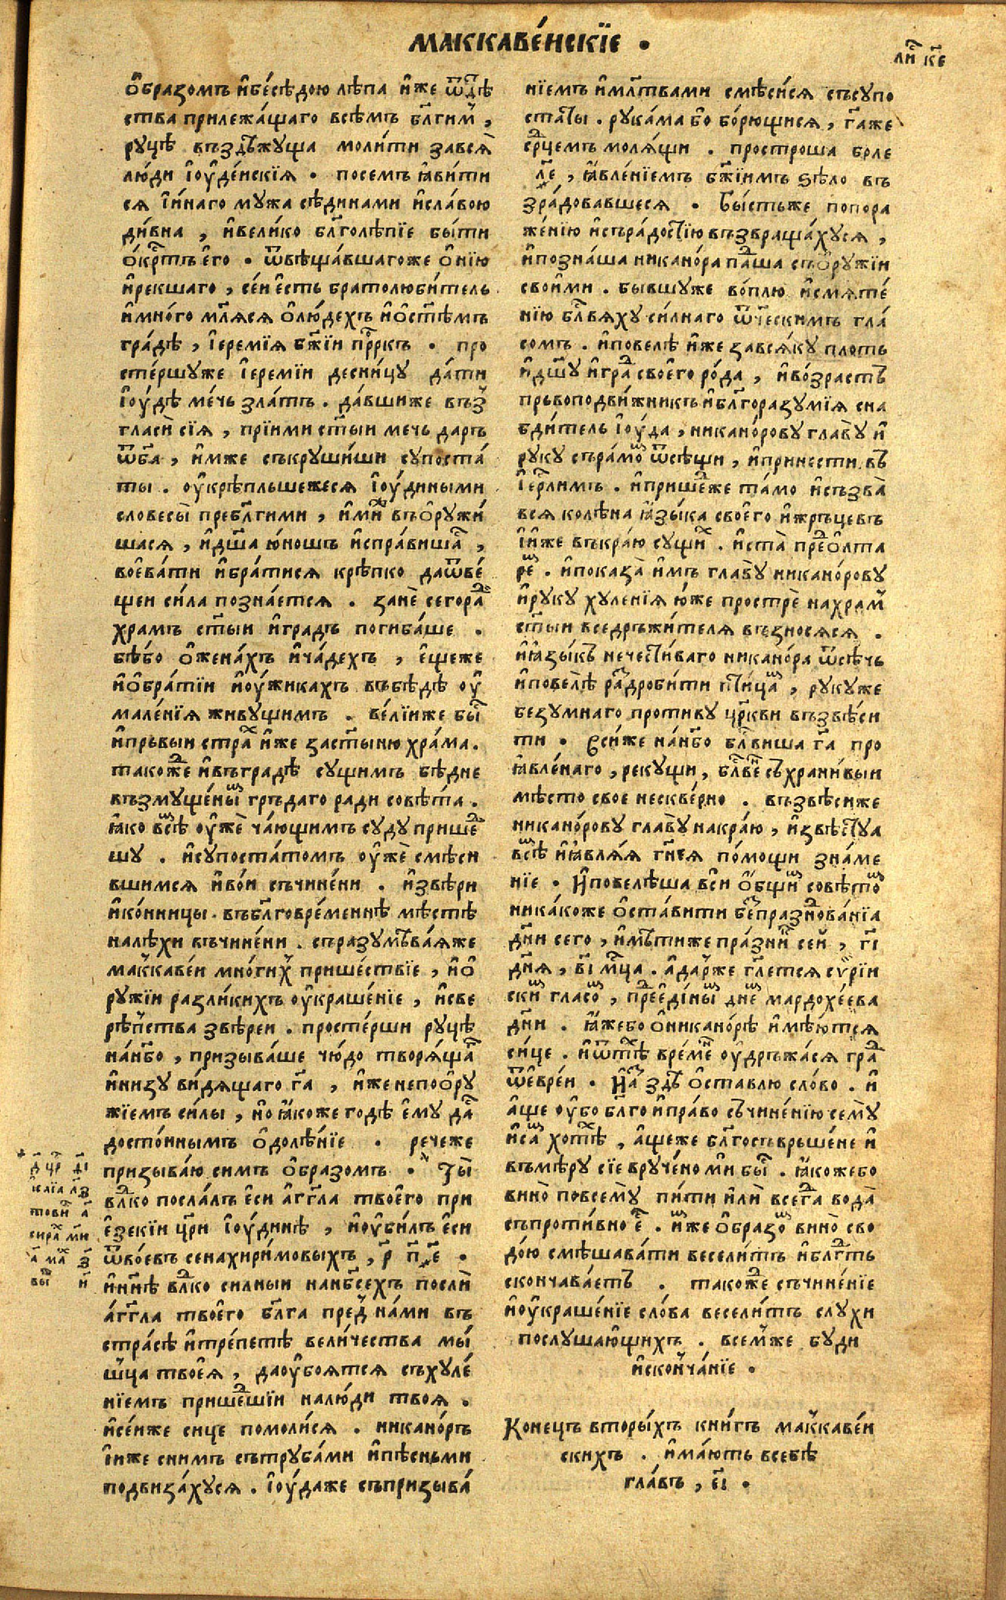 маккаве́нскїе .
ли҇ к҃е
ѻ҆́бразомъ и҆бесѣ́дою лѣ́па и҆́же ѿдѣ҇
ства прилежа́щаго всѣ́мъ бл҃ги́м ,
руцѣ̀ въздѣ́жуща моли́ти завсѧ̀
лю́ди і҆ѹде́искїѧ . посемъ ꙗ҆ви́ти
сѧ і҆и́наго му́жа сѣди́нами и҆сла́вою
ди́вна , и҆вели́ко бл҃голѣ́пїе бы́ти
ѻ҆́крⷭ҇тъ є҆го . ѿвѣща́вшагоже ѻ҆нї́ю
и҆рекшаго , се́и є҆́сть братолюби́тель
и҆мно́го млѧ҃сѧ ѻ҆лю́дехъ и҆ѻ҆ст҃ѣмъ
гра́дѣ , і҆еремі́ѧ бж҃їи прⷪ҇ркъ . про
сте́ршуже і҆еремі́и десни́цу да́ти
і҆ѹ́дѣ ме́чь зла́тъ . да́вшиже въз
гласи сїѧ̀ , прїими ст҃ы́и мечь даръ
ѿбг҃а , и҆́мже съкруши́ши супоста́
ты . ѹ҆крѣпльшежесѧ і҆ѹ́диными
словесы̀ пребл҃ги́ми , и҆ми́ въѻ҆ружи́
шасѧ , и҆дш҃а ю́ношъ и҆спра́виша ,
воева́ти и҆бра́тисѧ крѣ́пко даѿве́
щеи си́ла позна́етсѧ . занѐ сегора́
храмъ ст҃ы́и и҆гра́дъ погиба́ше .
бѣ̀бо ѻ҆жена́хъ и҆ча́дехъ , є҆ще́же
и҆ѻ҆бра́тїи и҆ѹ҆́жикахъ въбѣ́дѣ ѹ҆
мале́нїѧ живу́щимъ . ве́лїиже бы҇
и҆пръвыи страх и҆́же застыню хра́ма .
тако́же и҆въгра́дѣ су́щимъ бѣ́дне
възмуще́ны грѣ́даго ради совѣ́та .
ꙗ҆́ко всѣ ѹ҆жѐ ча́ющимъ суду прише
шу . и҆супоста́томъ ѹ҆жѐ смѣ́си
вшимсѧ и҆во́и съчине́ни . и҆зве́ри
и҆ко́нницы въбл҃говре́меннѣ мѣ́стѣ
налѣ́хи въчине́ни . съразумѣва́ѧже
макка́веи мно́гих прише́ствїе , и҆ѻ҆
ру́жїи разли́кихъ ѹ҆краше́нїе , и҆све
рѣ́пства звѣ́реи . просте́рши ру́цѣ
на́нбо , призыва́ше чю́до творѧ́ща
и҆низу ви́дѧщаго га҃ , и҆́же непоѻ҆ру́
жїемъ си́лы , но ꙗ҆́коже годѣ є҆му̀ да
досто́инымъ ѻ҆долѣ́нїе . речеже
призыва́ю симъ ѻ҆́бразомъ . * Ты̀
влⷣко посла́лъ є҆си а҆́гг҃ла твоего̀ при
є҆зекі́и цр҃и і҆ѹ́динѣ , и҆ѹ҆би́лъ є҆си
ѿво́евъ сенахири́мовыхъ , р҃ п҃ е҃ .
и҆нн҃ѣ влⷣко силныи нанбⷭ҇ехъ послѝ
а҆́гг҃ла твоего̀ бл҃га пред на́ми въ
стра́сѣ и҆тре́петѣ вели́чества мы́
шца твоеѧ̀ , даѹ҆боѧтсѧ съхуле́
нїемъ прише́шїи налю́ди твоѧ̀ .
и҆се́иже сице помоли́сѧ . никано́ръ
і҆и́же сни́мъ сътруба́ми и҆пѣ́сньми
подвиза́хусѧ . і҆ѹ́даже съпризыва́
нїемъ и҆мл҃твами смѣси́сѧ съсупо
ста́ты . рука́ма бо бо́рющисѧ , га҃же
ср҃цемъ молѧ́щи . простро́ша боле
ле҃ , ꙗ҆вле́нїемъ бж҃їимъ ѕѣло въ
зра́довавшесѧ . Бы́стьже попора
же́нїю и҆съра́достїю възвраща́хусѧ ,
и҆позна́ша никано́ра па́ша съѻ҆ру́жїи
свои́ми . бывшуже во́плю и҆смѧте́
нїю бл҃вѧ́ху си́лнаго ѿческимъ гла́
сомъ . и҆повелѣ̀ и҆́же завсѧ́ку пло́ть
и҆дш҃у и҆гра своего̀ ро́да , и҆во́зрастъ
пръвоподви́жникъ и҆бл҃горазу́мїѧ сна
бди́тель і҆ѹ́да , никано́рову главу̀ и҆
ру́ку сърамо ѿсѣщи , и҆принести въ
і҆ер҃лимъ . и҆прише́же та́мо и҆съзва̀
всѧ колѣна ꙗ҆зы́ка своего̀ и҆жръцевъ
і҆и́же въкра́ю сущи . и҆ста̀ преѻ҆лта
ре . и҆показа и҆́мъ главу̀ никано́рову
и҆ру́ку хуле́нїѧ ю́же прострѐ нахра́м
ст҃ы́и вседръжи́телѧ възносѧсѧ .
и҆ꙗ҆зы́къ нечести́ваго никано́ра ѿсѣчь
и҆повелѣ̀ раздроби́ти пти́ца , ру́куже
безу́мнаго проти́ву цр҃кви възвѣ́си
ти . Всѝже на́нбо бл҃ви́ша га҃ про
ꙗ҆вле́наго , реку́щи , бл҃ве́ съхрани́выи
мѣ́сто свое нескве́рно . възвѣ́сиже
никано́рову главу̀ накра́ю , и҆звѣ́стуа
всѣ и҆ꙗ҆влѧ́ѧ гн҃еѧ по́мощи зна́ме
нїе . И҆повелѣ́ша вси ѻ҆́бщи совѣ́то
ника́коже ѻ҆ста́вити беспра́знова́нїа
дн҃и сего , и҆мѣ́тиже пра́зни се́и , г҃і
дн҃ѧ , в҃і мц҃а . а҆даръже гл҃етсѧ сѵрі́и
ски гласо , пре́еди́ны дне мардохе́ева
дн҃и . ꙗ҆́жебо ѻ҆никано́рѣ и҆мѣ́ютсѧ
си́це . и҆ѿтѣ вре́ме ѹ҆дръжа́сѧ гра
ѿе҆вре́и . И҆а здѣ̀ ѻ҆ста́влю сло́во . и҆
а҆́ще ѹ҆́бо бл҃го и҆пра́во съчине́нїю сему̀
и҆са хотѣ , а҆́щеже бл҃госъвръше́не и҆
въмѣ́ру сїе вруче́но ми бы . ꙗ҆́кожебо
вино̀ повсему̀ пи́ти и҆лѝ всегда вода̀
съпроти́вно є҆ . и҆́же ѻ҆́бразо вино̀ сво
до́ю смѣшава́ти весели́тъ и҆бл҃гть
сконча́ваетъ . тако́же съчине́нїе
и҆ѹ҆краше́нїе сло́ва весели́тъ слу́хи
послу́шающихъ . всемже бу́ди
и҆сконча́нїе .
Коне́цъ вторы́хъ кни́гъ маккаве́и
скихъ . и҆ма́ють всебѣ̀
гла́въ , е҃і .